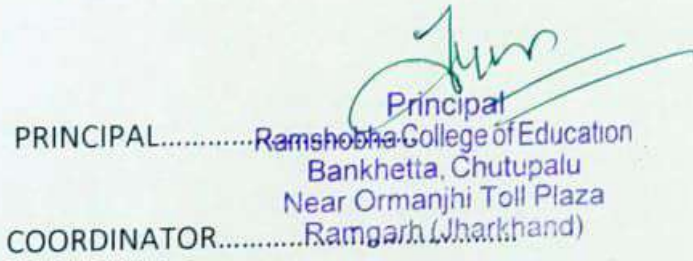 Principal
PRINCIPAL............Ramshobha College of Education
Bankhetta, Chutupalu
Near Ormanjhi Toll Plaza
COORDINATOR..........Ramgarh (Jharkhand)